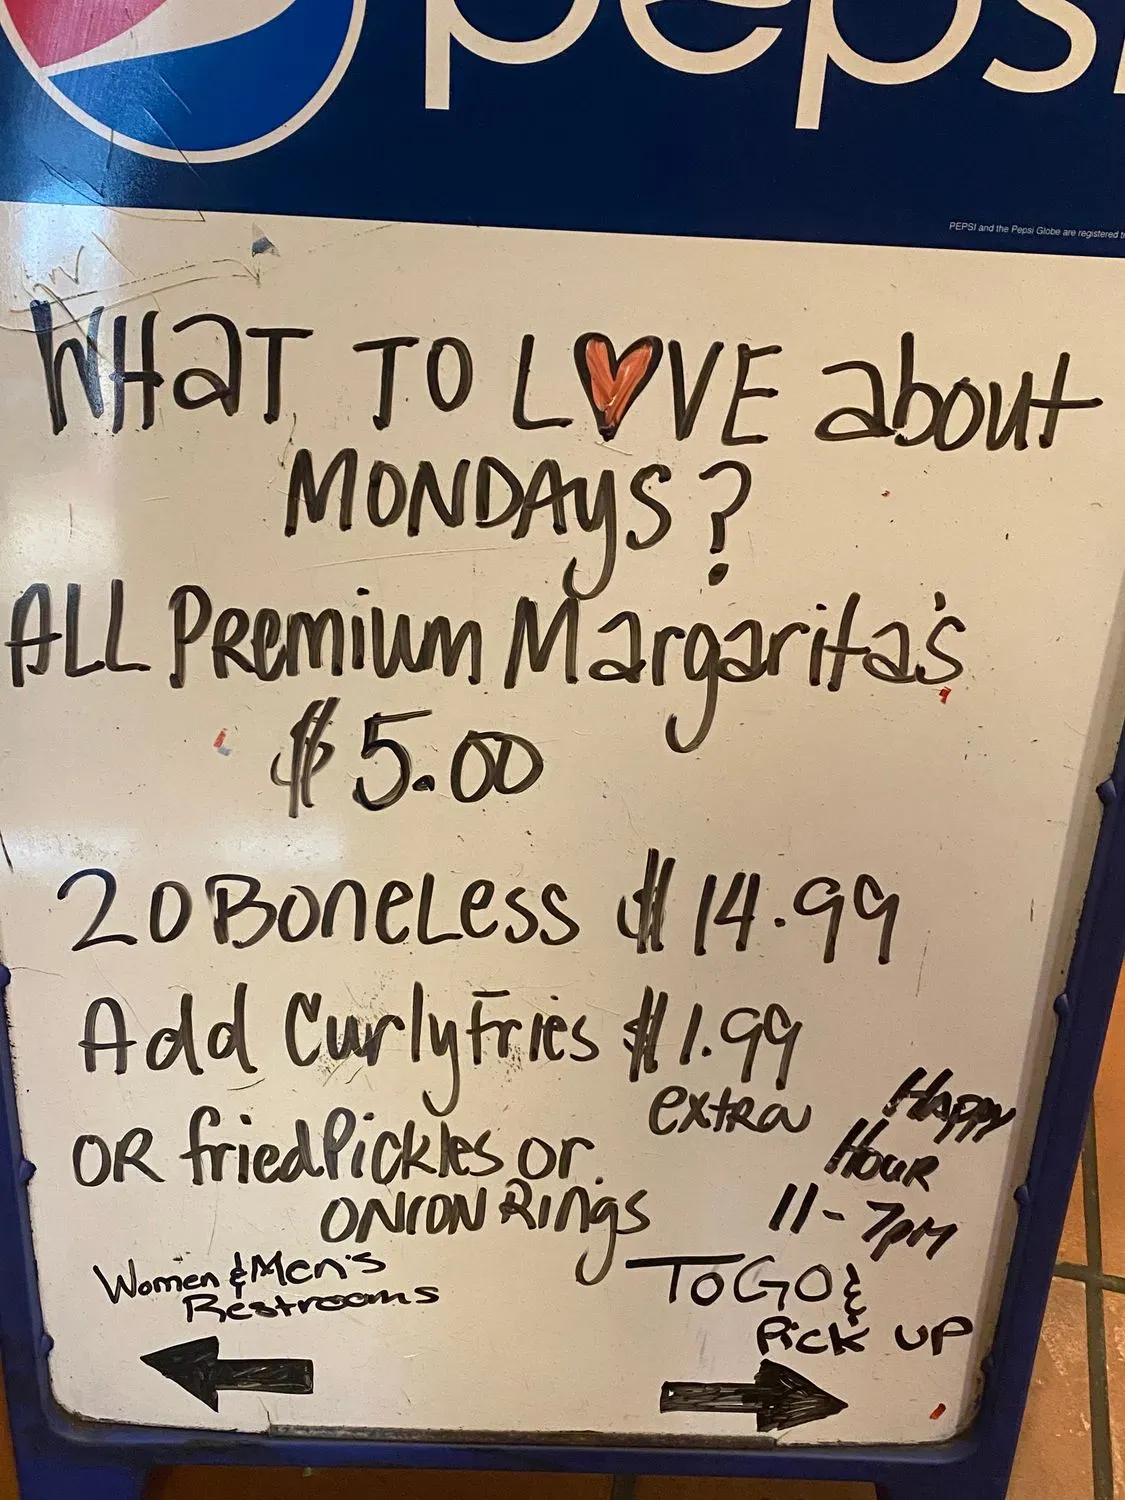 pepsi
PEPSI and the Pepsi Globe are registered
WHaT TO LOVE about
MONDAys?
ALL PRemium Margarita's
$5.00
20 BoneLess $14.99
Add CurlyFries $1.99
extRa
OR friedPickles or
ONION Rings
Happy
Hour
11-7pm
Women & Men's
Restrooms
TOGO &
Pick UP